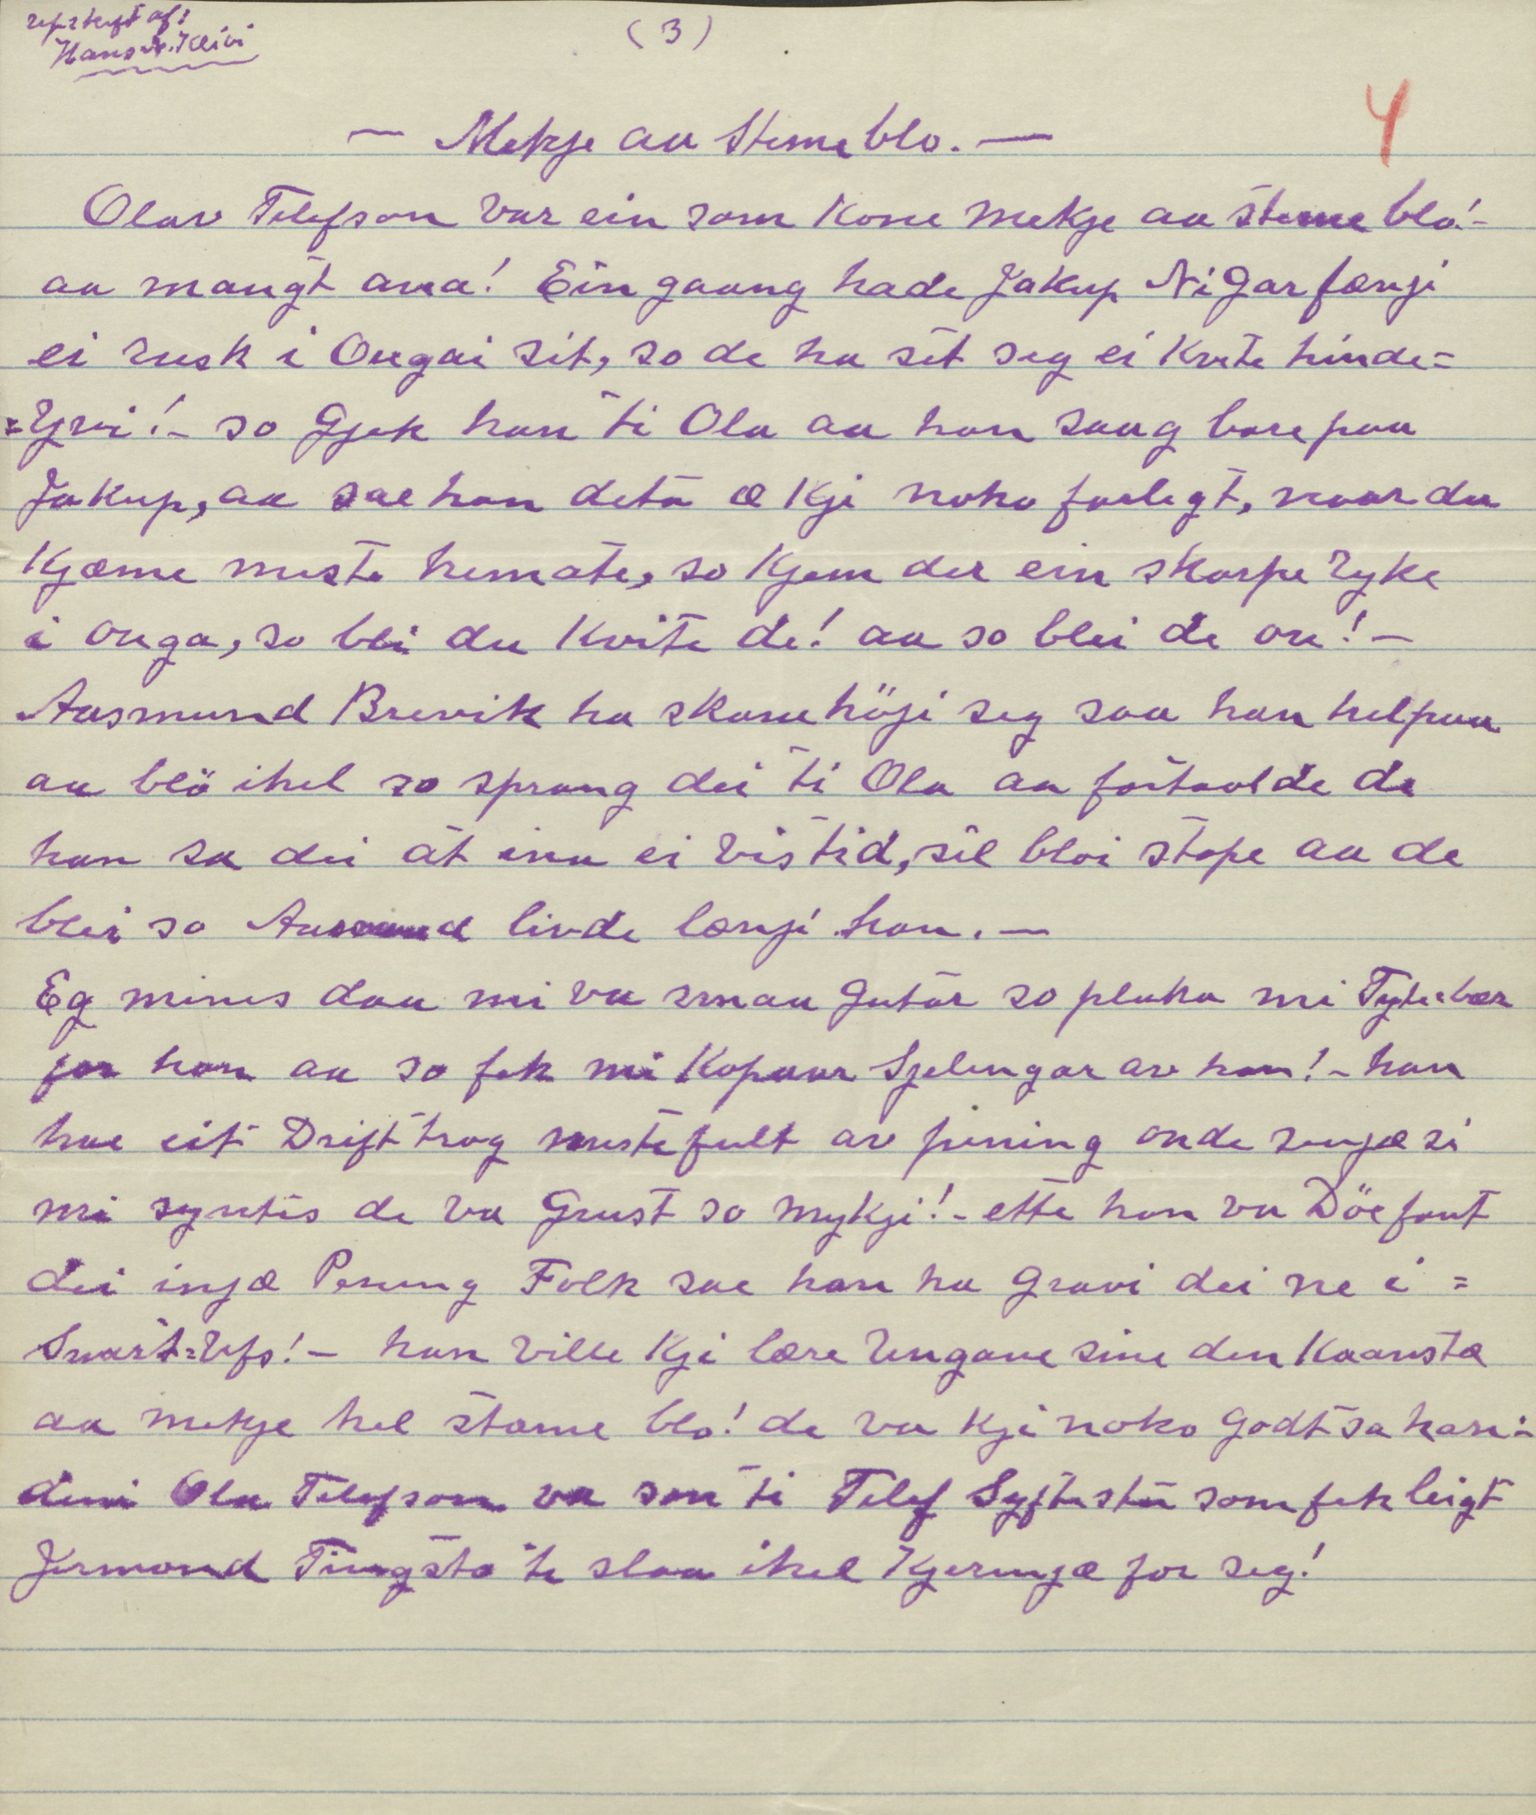 upskrift af:
Hans N. Kleivi
(3)
4
— Mekje aa Steme blo. —
Olav Telefson var ein som Kone mekje aa steme blo! -
aa mangt ana! Ein gaang hade Jakup NiGar fængi
ei rusk i Ougai sit, so de ha sét seg ei Kvite hinde=
=Yvi! - so Gjek han ti Ola aa han saag bare paa
Jakup, aa sae han detá æ Kji noko farlegt, naar du
Kjæme meste hemate, so Kjem der ein skarpe ryke
i ouga, so bli du Kvite de! aa so blei de ou! -
Aasmund Brevik ha skamehögi seg saa han helpaa
aa blö ihel so sprang dei ti Ola aa fortaolde de
han sa dei át inn ei vis tid, sil bloi stope aa de
blei so Aasmund livde længi han. —
Eg mines daa mi va smaa Gutár so pluka mi Tytebær
for han aa so fek mi Kopaar Sjelingar av han! - han
hae eit Drifttrog meste fult av pening onde sengæ si
mi syntis de va Grust so mykji! - ette han va Döe fant
dei ingæ Pening Folk sae han ha Gravi dei ne i =
Svart=Ufs! - han ville Kji lære Ungane sine den Kaanstæ
aa mekje hel stame blo! de va Kji noko Godt sa han: -
deni Ola Telefson va son ti Telef Syftestú som fek leigt
Jermond Tingsta te slaa ihel Kjeringæ for seg!